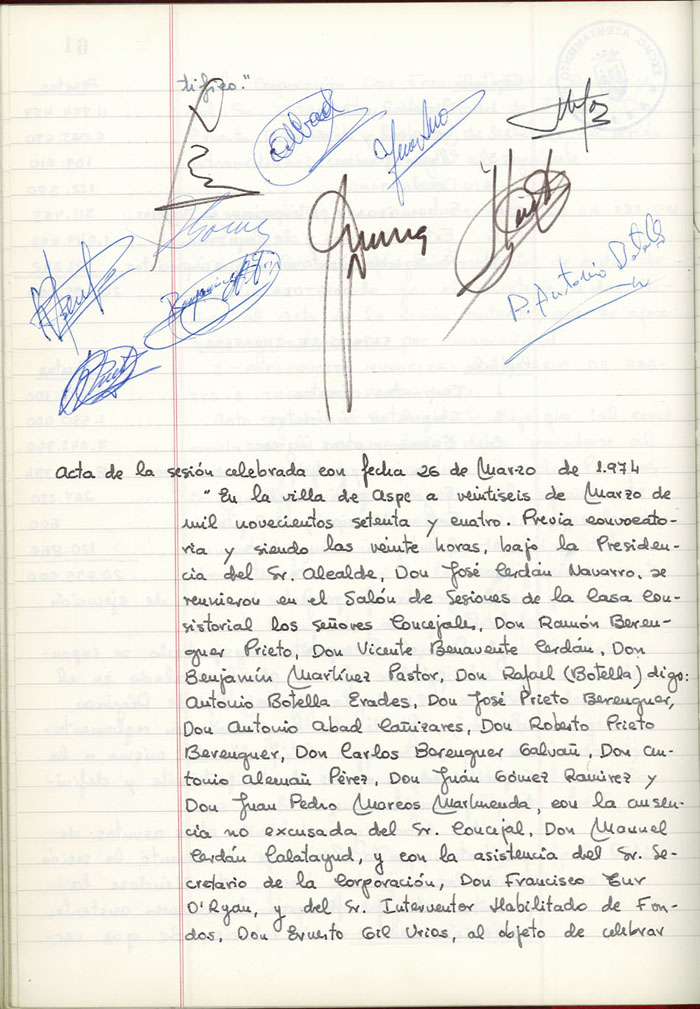 tifico."
P. Antonio Botella
Acta de la sesión celebrada con fecha 26 de Marzo de 1.974
"En la villa de Aspe a veintiseis de Marzo de
mil novecientos setenta y cuatro. Previa convocato-
ria y siendo las veinte horas, bajo la Presiden-
cia del Sr. Alcalde, Don José Cerdán Navarro, se
reunieron en el Salón de Sesiones de la Casa Con-
sistorial los señores Concejales, Don Ramón Beren-
guer Prieto, Don Vicente Benavente Cerdán, Don
Benjamín Martínez Pastor, Don Rafael (Botella) digo:
Antonio Botella Erades, Don José Prieto Berenguer,
Don Antonio Abad Cañizares, Don Roberto Prieto
Berenguer, Don Carlos Berenguer Galvañ, Don An-
tonio Alemañ Pérez, Don Juán Gómez Ramirez y
Don Juan Pedro Marcos Marhuenda, con la ausen-
cia no excusada del Sr. Concejal, Don Manuel
Cerdán Calatayud, y con la asistencia del Sr. Se-
cretario de la Corporación, Don Francisco Eur
O'Ryan, y del Sr. Interventor Habilitado de Fon-
dos, Don Ernesto Gil Urios, al objeto de celebrar